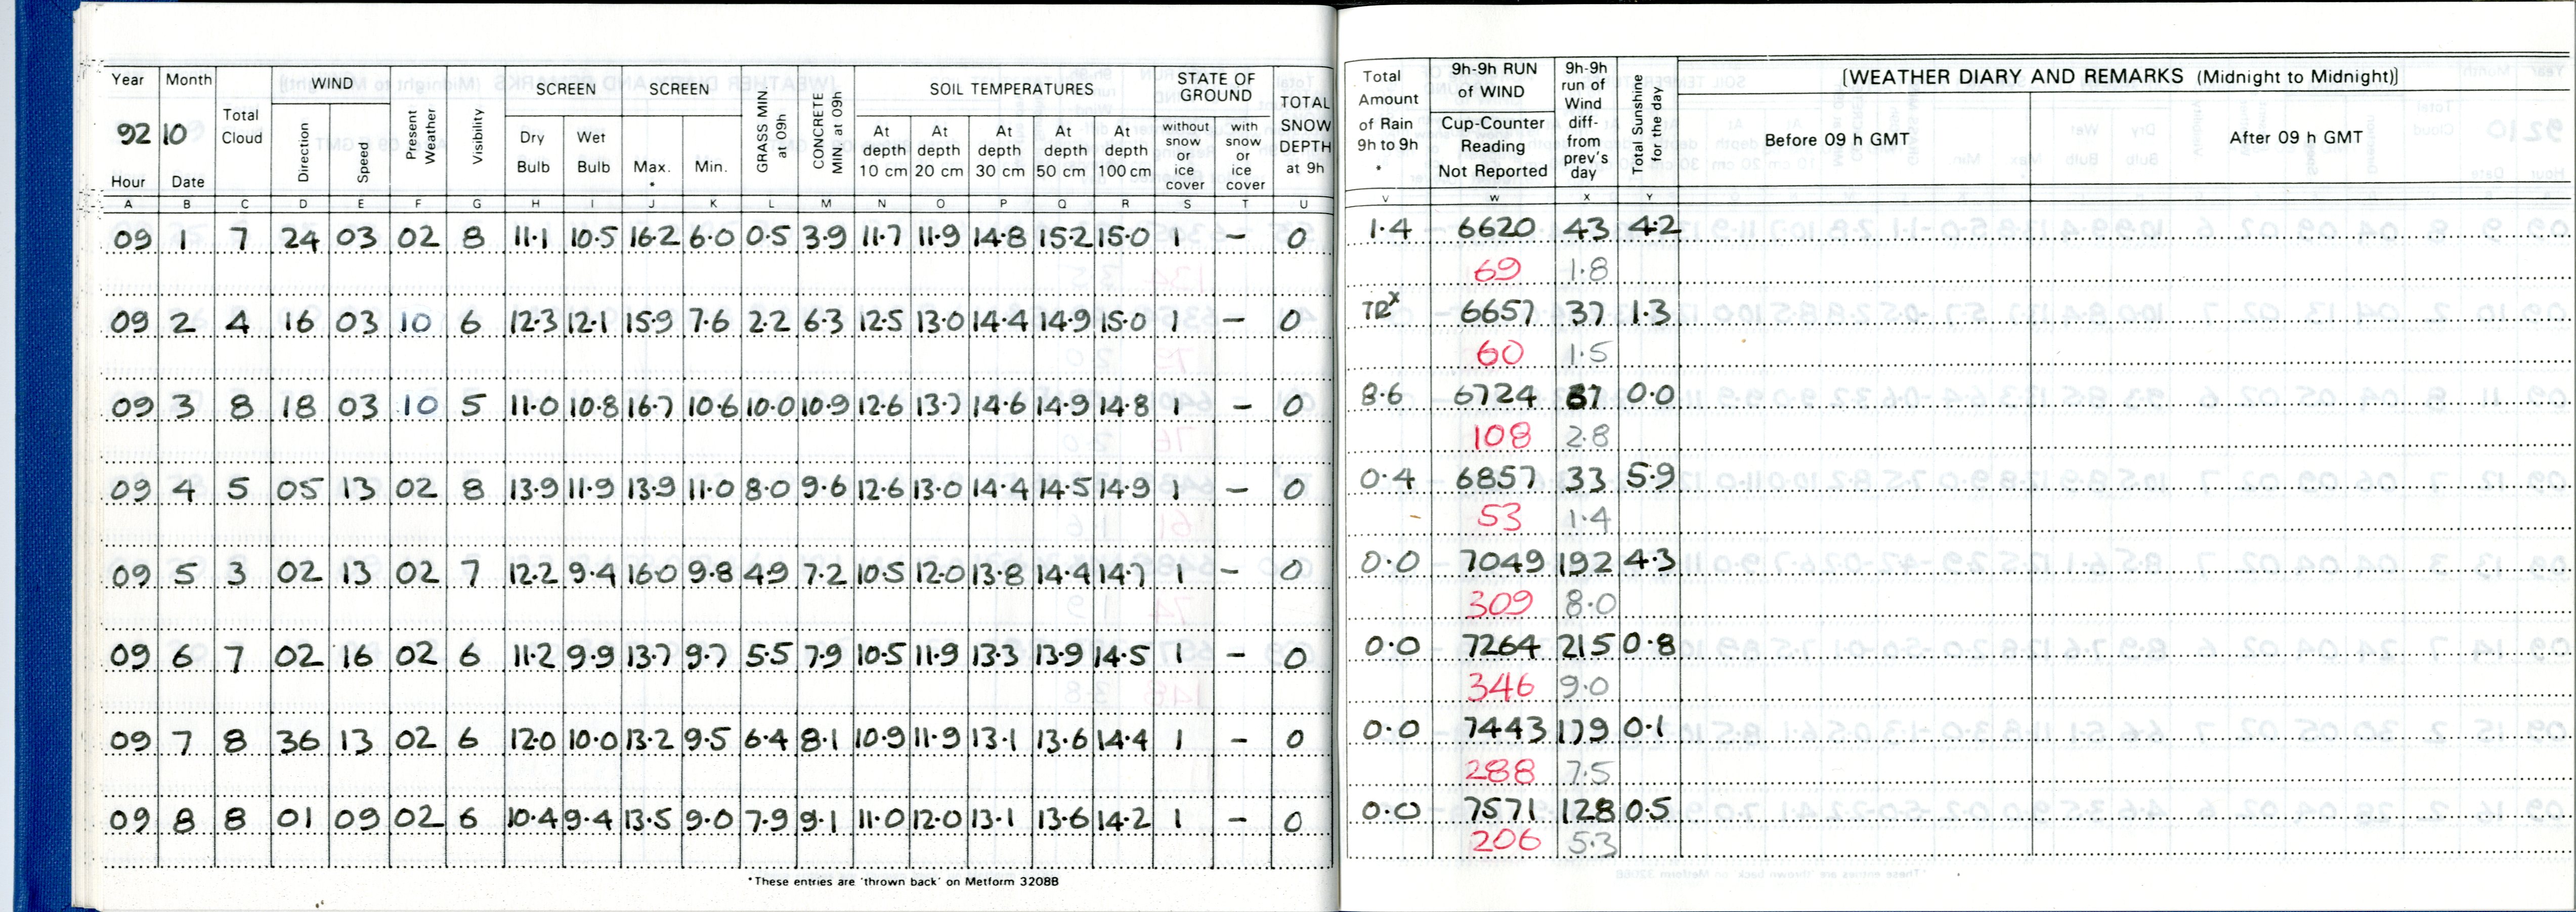 Year Month WIND SCREEN SCREEN SOIL TEMPERATURES STATE OF GROUND
92 10 Total Cloud Direction Speed Present Weather Visibility Dry Bulb Wet Bulb Max. * Min. GRASS MIN. at 09h CONCRETE MIN at 09h At depth 10 cm At depth 20 cm At depth 30 cm At depth 50 cm At depth 100 cm without snow or ice cover with snow or ice cover TOTAL SNOW DEPTH at 9h
Hour Date
A B C D E F G H I J K L M N O P Q R S T U
09 1 7 24 03 02 8 11.1 10.5 16.2 6.0 0.5 3.9 11.7 11.9 14.8 15.2 15.0 1 – 0
09 2 4 16 03 10 6 12.3 12.1 15.9 7.6 2.2 6.3 12.5 13.0 14.4 14.9 15.0 1 – 0
09 3 8 18 03 10 5 11.0 10.8 16.7 10.6 10.0 10.9 12.6 13.7 14.6 14.9 14.8 1 – 0
09 4 5 05 13 02 8 13.9 11.9 13.9 11.0 8.0 9.6 12.6 13.0 14.4 14.5 14.9 1 – 0
09 5 3 02 13 02 7 12.2 9.4 16.0 9.8 4.9 7.2 10.5 12.0 13.8 14.4 14.7 1 – 0
09 6 7 02 16 02 6 11.2 9.9 13.7 9.7 5.5 7.9 10.5 11.9 13.3 13.9 14.5 1 – 0
09 7 8 36 13 02 6 12.0 10.0 13.2 9.5 6.4 8.1 10.9 11.9 13.1 13.6 14.4 1 – 0
09 8 8 01 09 02 6 10.4 9.4 13.5 9.0 7.9 9.1 11.0 12.0 13.1 13.6 14.2 1 – 0
*These entries are 'thrown back' on Metform 3208B
Total Amount of Rain 9h to 9h * 9h-9h RUN of WIND Cup-Counter Reading Not Reported 9h-9h run of Wind diff- from prev's day Total Sunshine for the day [WEATHER DIARY AND REMARKS (Midnight to Midnight)]
Before 09 h GMT After 09 h GMT
V W X Y
1.4 6620 43 4.2
69 1.8
TR x 6657 37 1.3
60 1.5
8.6 6724 67 0.0
108 2.8
0.4 6857 33 5.9
53 1.4
0.0 7049 192 4.3
309 8.0
0.0 7264 215 0.8
346 9.0
0.0 7443 179 0.1
288 7.5
0.0 7571 128 0.5
206 5.3